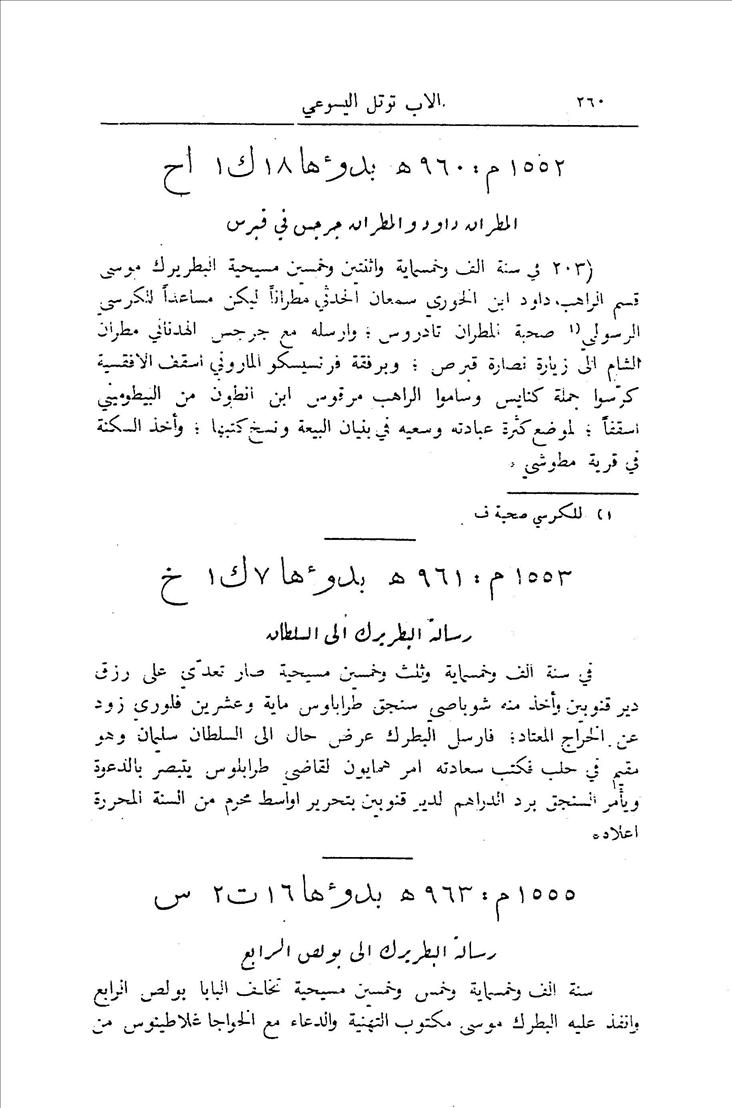 ٢٦٠ الاب توتل اليسوعي
١٥٥٢ م : ٩٦٠ ه بدوءها ١٨ ك ١ اح
المطران داود والمطران جرجس في قبرس
٢٠٣) في سنة الف وخمسماية واثنتين وخمسين مسيحية البطريرك موسى
قسم الراهب داود ابن الخوري سمعان الحدثي مطراناً ليكن مساعداً للكرسي
الرسولي ١) صحبة المطران تادروس ؛ وارسله مع جرجس الهدناني مطران
الشام الى زيارة نصارة قبرص ؛ وبرفقة فرنسيسكو الماروني اسقف الافقسية
كرّسوا جملة كنايس وساموا الراهب مرقوس ابن انطون من البيطوميني
اسقفاً ؛ لموضع كثرة عبادته وسعيه في بنيان البيعة ونسخ كتبها ؛ وأخذ السكنة
في قرية مطوشي .
١) للكرسي صحبة ف
١٥٥٣ م : ٩٦١ ه بدوءها ٧ ك ١ خ
رسالة البطريرك الى السلطان
في سنة الف وخمسماية وثلث وخمسين مسيحية صار تعدّي على رزق
دير قنوبين وأخذ منه شوباصي سنجق طراباوس ماية وعشرين فلوري زود
عن الخراج المعتاد ؛ فارسل البطرك عرض حال الى السلطان سليمان وهو
مقيم في حلب فكتب سعادته امر همايون لقاضي طرابلوس يتبصر بالدعوة
ويأمر السنجق برد الدراهم لدير قنوبين بتحرير اواسط محرم من السنة المحررة
اعلاه .
١٥٥٥ م : ٩٦٣ ه بدوءها ١٦ ت ٢ س
رسالة البطريرك الى بولص الرابع
سنة الف وخمسماية وخمس وخمسين مسيحية تخلف البابا بولص الرابع
وانفذ عليه البطرك موسى مكتوب التهنية والدعاء مع الخواجا غلاطينوس من